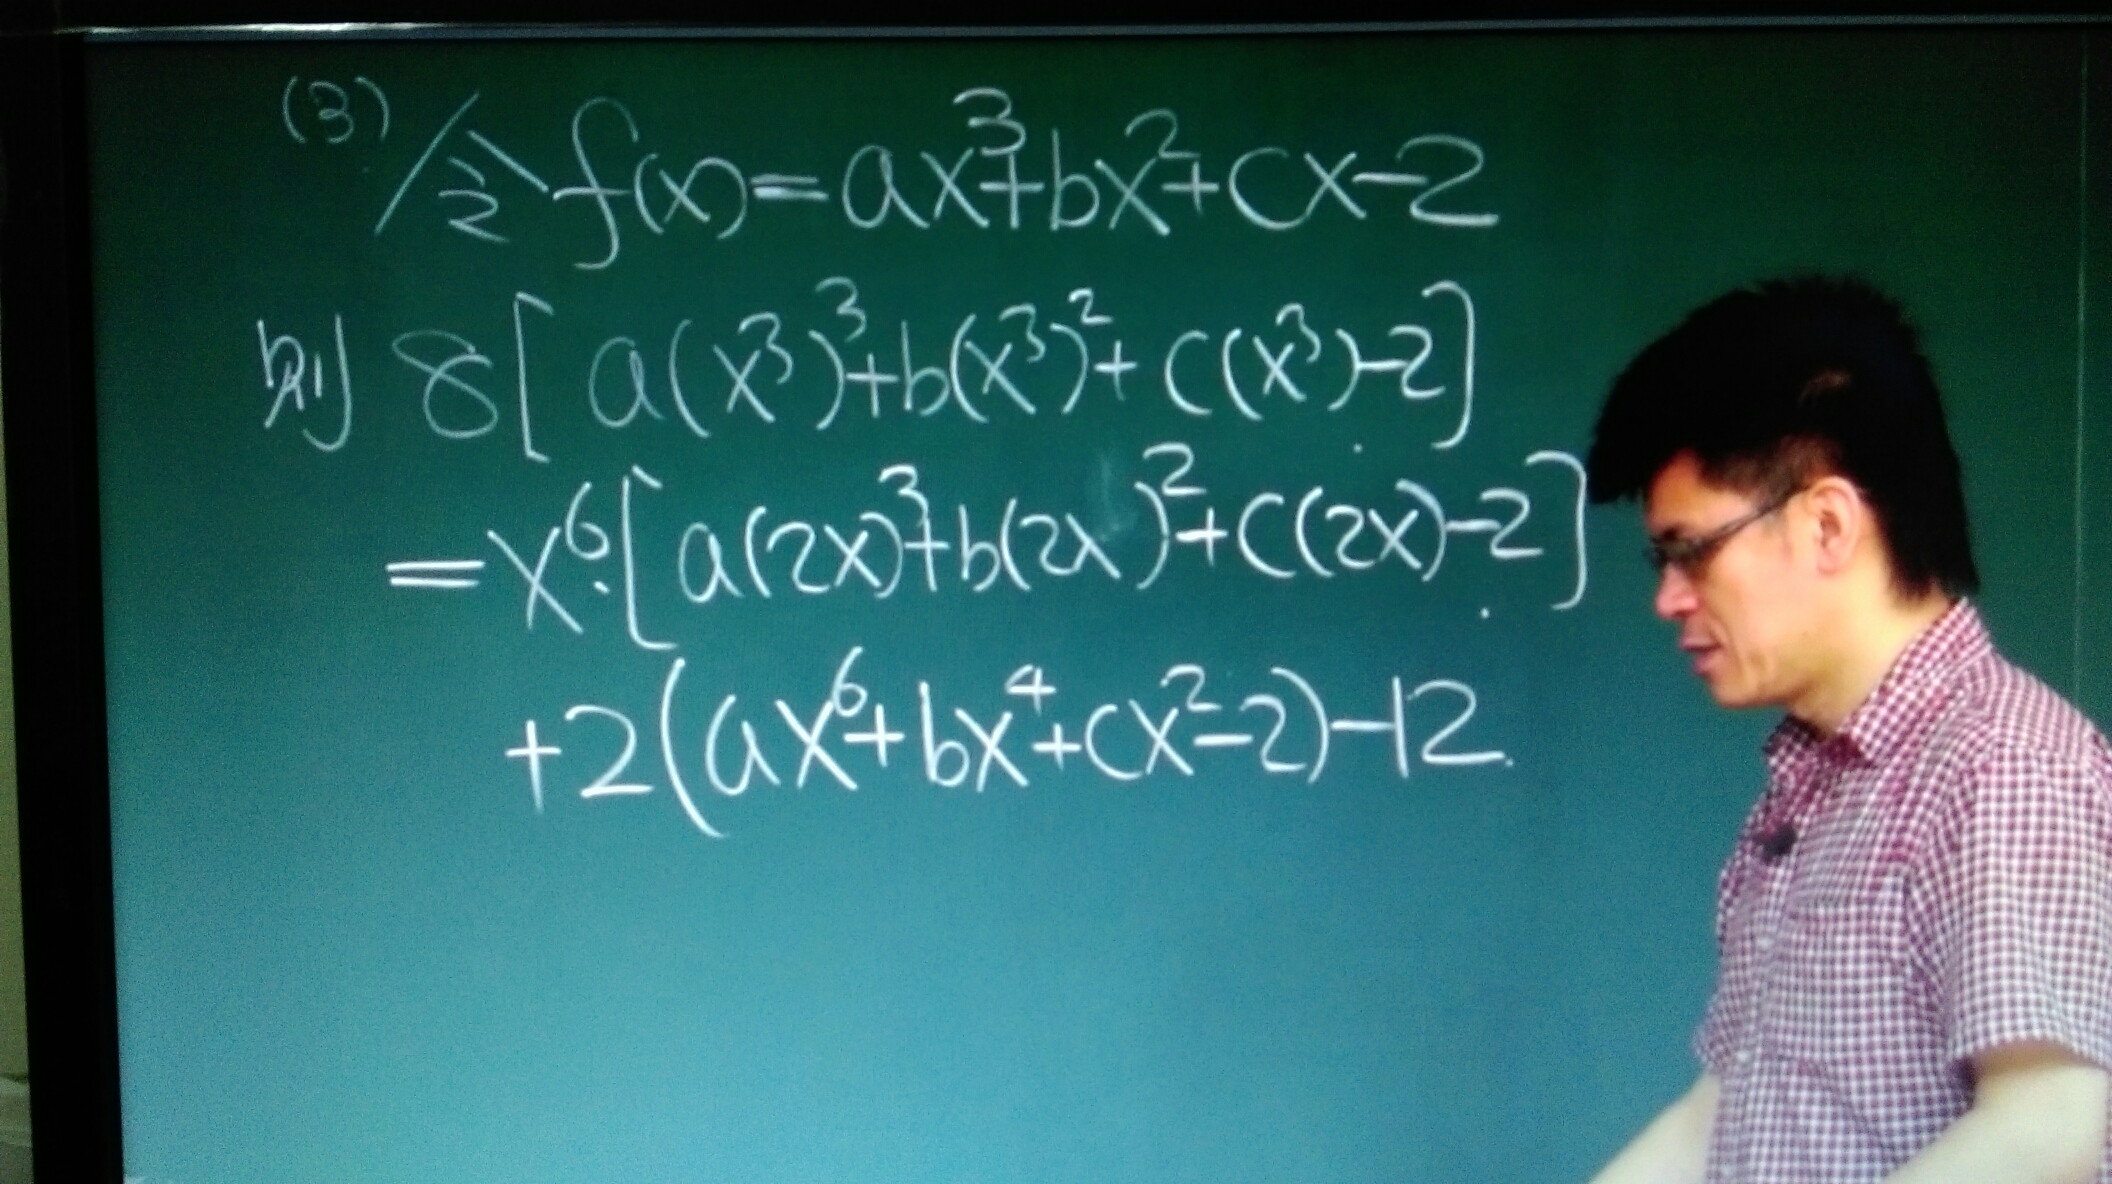 (3) 令 f(x)=ax³+bx²+cx-2
则 8[a(x³)³+b(x³)²+c(x³)-2]
=x⁶·[a(2x)³+b(2x)²+c(2x)-2]
+2(ax⁶+bx⁴+cx²-2)-12.